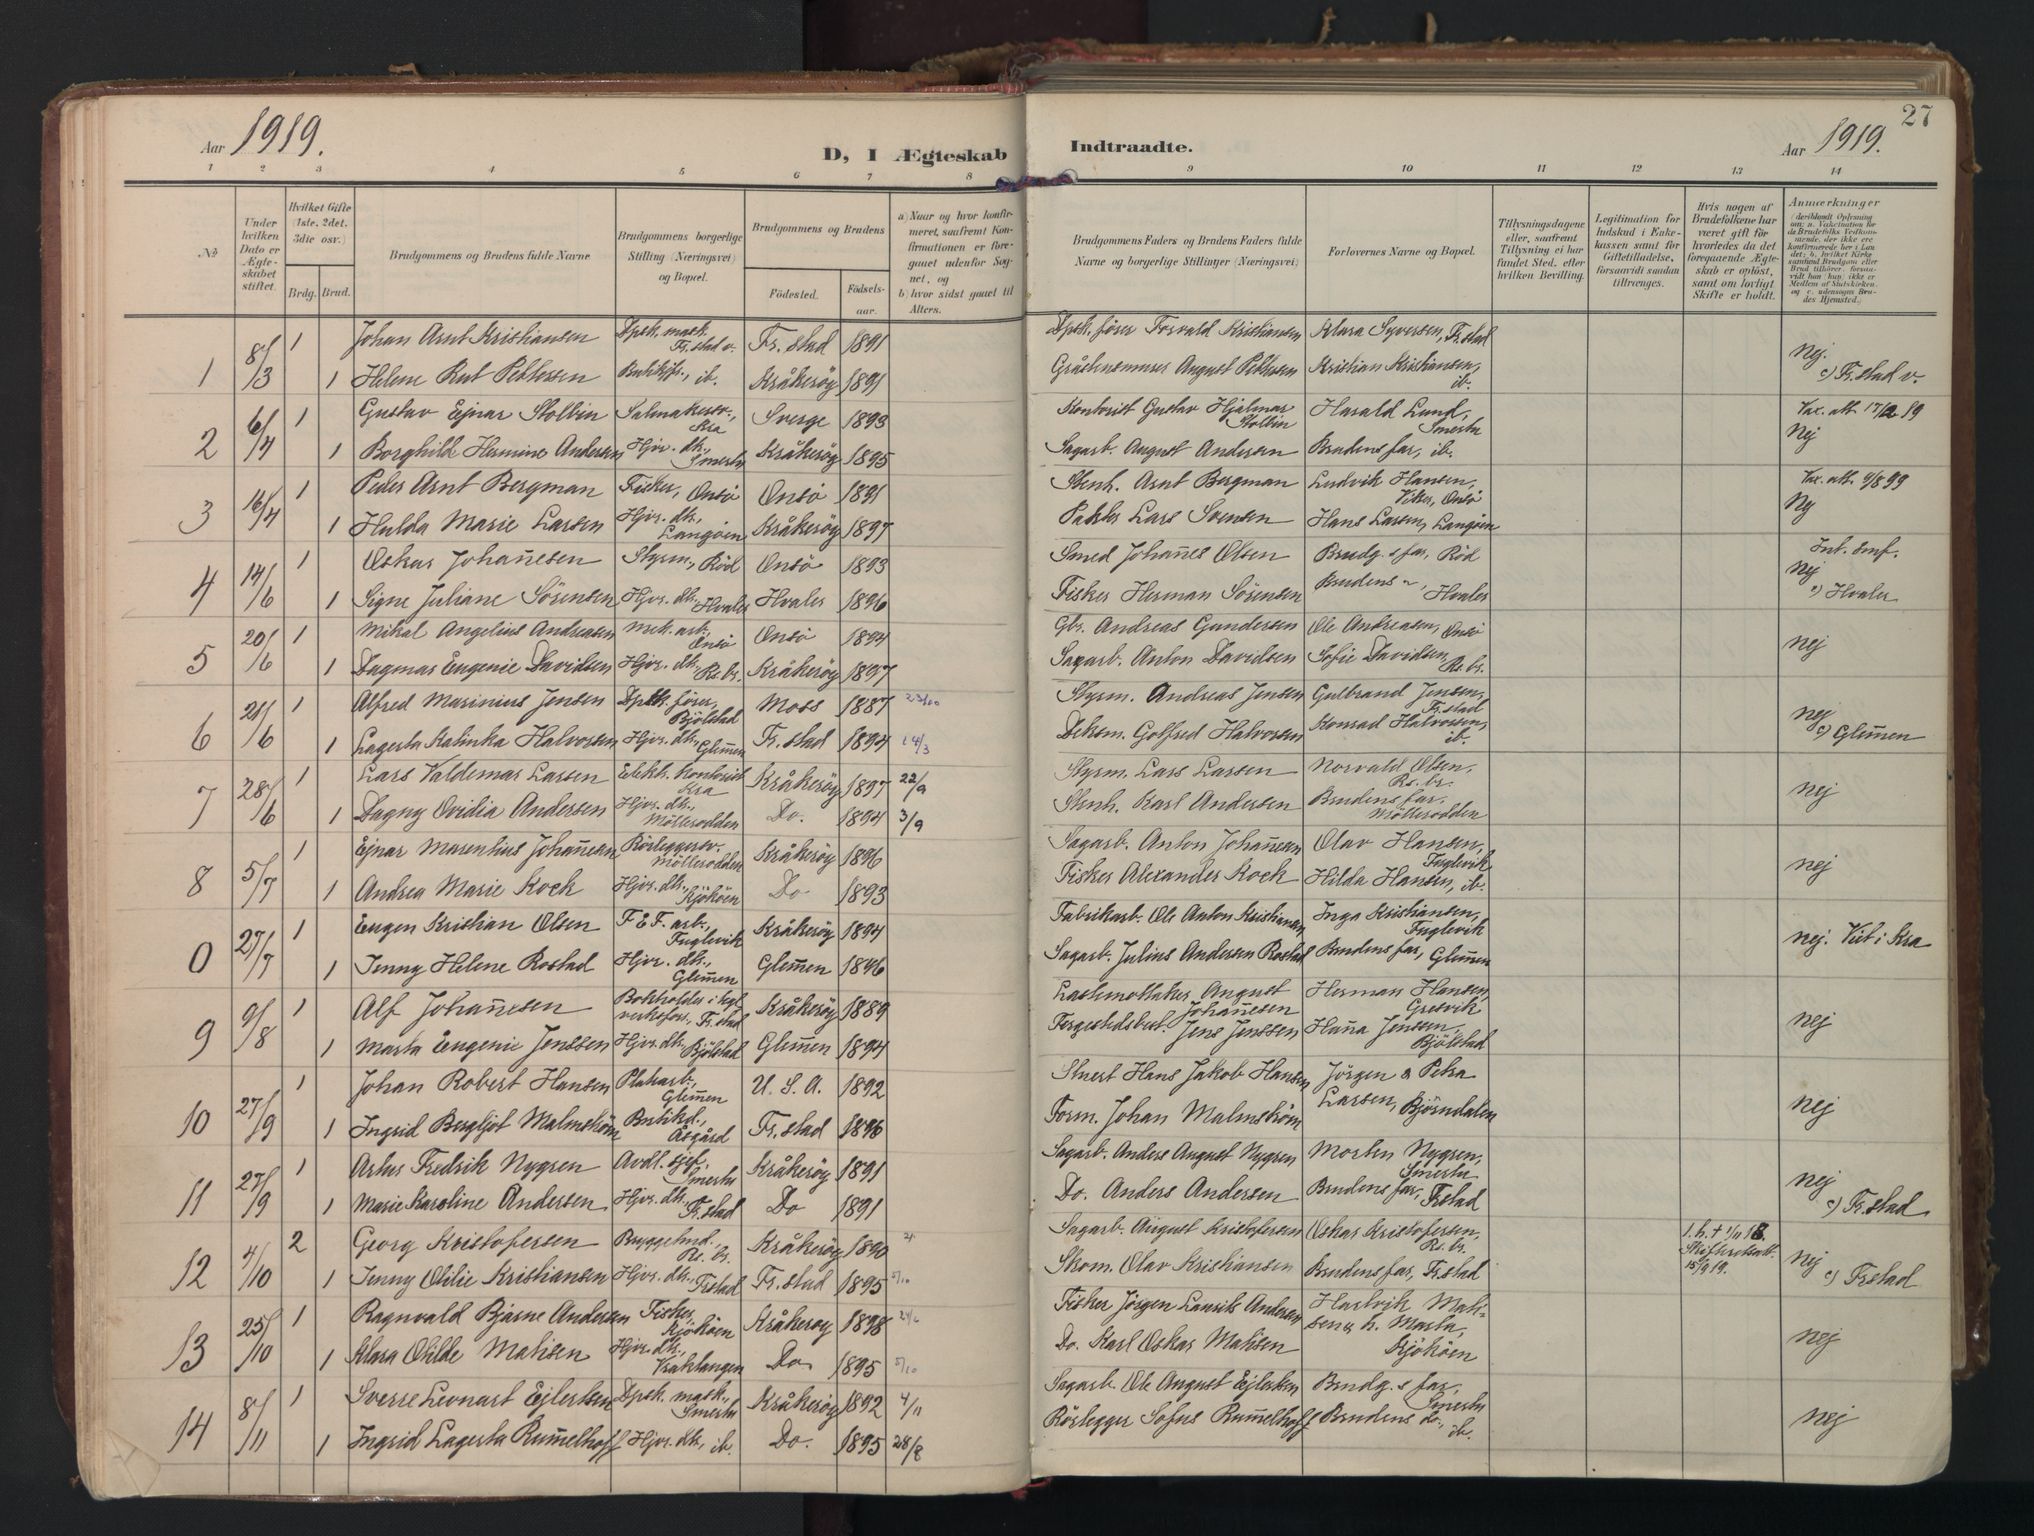 Aar 1919.
D, I Ægteskab Indtraadte.
Aar 1919.
27
1 2 3 4 5 6 7 8 9 10 11 12 13 14
№
Under hvilken Dato er Ægteskabet stiftet.
Hvilket Gifte (1ste, 2det, 3die osv.)
Brdg. Brud.
Brudgommens og Brudens fulde Navne
Brudgommens borgerlige Stilling (Næringsvei) og Bopæl.
Brudgommens og Brudens
Födested. Födsels-aar.
a) Naar og hvor konfirmeret, saafremt Konfirmationen er foregaaet udenfor Sognet, og b) hvor sidst gaaet til Alters.
Brudgommens Faders og Brudens Faders fulde Navne og borgerlige Stillinger (Næringsvei)
Forlovernes Navne og Bopæl.
Tillysningsdagene eller, saafremt Tillysning ei har fundet Sted, efter hvilken Bevilling.
Legitimation for Indskud i Enkekassen samt for Giftetilladelse, forsaavidt saadan tiltrænges.
Hvis nogen af Brudefolkene har været gift før hvorledes da det foregaaende Ægteskab er opløst, samt om lovligt Skifte er holdt.
Anmærkninger
1 8/3 1 Johan Arnt Kristiansen Dpsk. mask. Fr.stad v. Fr.stad 1891 Dpsk. fører Torvald Kristiansen Klara Syversen, Fr.stad
1 Helene Rut Pettersen Butikfr., ib. Kråkerøy 1891 Gråstensmurer August Pettersen Kristian Kristiansen, ib. Nej. c) Fr.stad v.
2 6/4 1 Gustav Ejnar Stolbin Salmakersv., Kra Sverge 1893 Kontorist Gustav Hjalmar Stolbin Harald Lund, Smertu Vax. att. 17/2 19
1 Borghild Hermine Andersen Hjv. dtr., Smertu Kråkerøy 1895 Sagarb. August Andersen Brudens far, ib. Nej
3 16/4 1 Peder Arnt Bergman Fisker, Onsö Onsö 1891 Stenh. Arnt Bergman Ludvik Hansen, Viker, Onsö Vax. att. 9/8 99
1 Hulda Marie Larsen Hjv. dtr., Langöen Kråkerøy 1897 Pakker Lars Svensen Hans Larsen, Langöen Nej
4 14/6 1 Oskar Johan̄esen Styrm., Röd Onsö 1893 Smed Johan̄es Olsen Brudg.s far, Röd Int. smf.
1 Signe Juliane Sörensen Hjv. dtr., Hvaler Hvaler 1896 Fisker Herman Sörensen Brudens ~, Hvaler Nej c) Hvaler
5 20/6 1 Mikal Angelius Andreasen Mek. arb. Onsö Onsö 1894 Gbr. Andreas Gundersen Ole Andreasen, Onsö
1 Dagmar Eugenie Davidsen Hjv. dtr., Rs. br. Kråkerøy 1897 Sagarb. Anton Davidsen Sofie Davidsen, Rs. br. nej
6 21/6 1 Alfred Marinius Jensen Dpsk. fører, Bjölstad Moss 1887 23/10 Styrm. Andreas Jensen Gulbrand Jensen, Fr.stad
1 Lagerta Katinka Halvorsen Hjv. dtr., Glem̄en Fr.stad 1894 14/3 Deksm. Golfred Halvorsen Konrad Halvorsen, ib. nej c) Glem̄en
7 28/6 1 Lars Valdemar Larsen Elekt. kontorist Kra Kråkerøy 1897 22/9 Styrm. Lars Larsen Norvald Olsen, Rs. br.
1 Dagny Ovidia Andersen Hjv. dtr., Möllerodden Do. 1894 3/9 Stenh. Karl Andersen Brudens far, Möllerodden nej
8 5/7 1 Ejnar Marentius Johan̄esen Rörleggersv. Möllerodden Kråkerøy 1896 Sagarb. Anton Johan̄esen Olav Hansen, Fuglevik
1 Andrea Marie Koch Hjv. dtr., Kjököen Do 1893 Fisker Alexander Koch Hilda Hansen, ib. nej
0 27/7 1 Eugen Kristian Olsen F.E.F. arb., Fuglevik Kråkerøy 1894 Fabrikarb. Ole Anton Kristiansen Inga Kristiansen, Fuglevik nej. Viet i Kra
1 Jenny Helene Rostad Hjv. dtr., Glem̄en Glem̄en 1896 Sagarb. Julius Andersen Rostad Brudens far, Glem̄en
9 9/8 1 Alf Johan̄esen Bokholder i kgl. verkefor., Fr.stad Kråkerøy 1889 Lastmottaker August Johan̄esen Herman Hansen, Gresvik
1 Marta Eugenie Jenssen Hjv. dtr., Bjölstad Glem̄en 1894 Fergestedsbest. Jens Jenssen Han̄a Jenssen, Bjölstad nej
10 27/9 1 Johan Robert Hansen Platearb., Glem̄en U.S.A. 1892 Stuert Hans Jakob Hansen Jörgen & Petra Larsen, Björndalen
1 Ingrid Bergljot Malmström Butikd., Åsgård Fr.stad 1896 Form. Johan Malmström nej
11 27/9 1 Artur Fredrik Nygren Avdl. sjef., Smertu Kråkerøy 1891 Sagarb. Anders August Nygren Morten Nygren, Smertu
1 Marie Karoline Andersen Hjv. dtr., Fr.stad Do 1891 Do. Anders Andersen Brudens far, Fr.stad nej c) Fr.stad
12 4/10 2 Georg Kristofersen Bryggeind., Rs. br. Kråkerøy 1890 Sagarb. August Kristofersen Oskar Kristofersen, Rs. br. 1. h. † 1/11 18 Skifteretsatt. 15/9 19.
1 Jenny Otilie Kristiansen Hjv. dtr., Fr.stad Fr.stad 1895 5/10 Skom. Olav Kristiansen Brudens far, Fr.stad nej c) Fr.stad
13 25/10 1 Ragnvald Bjarne Andersen Fisker, Kjököen Kråkerøy 1898 Fisker Jörgen Laurits Andersen Hartvik Matisen & h. Marta, Kjököen
1 Klara Otilde Matisen Hjv. dtr., Vraklangen Do. 1895 5/10 Do. Karl Oskar Matisen nej
14 8/11 1 Sverre Leonart Ejlertsen Dpsk. mask., Smertu Kråkerøy 1892 4/11 Sagarb. Ole August Ejlertsen Brudg.s far, Smertu
1 Ingrid Lagerta Rum̄elhoff Hjv. dtr., ib. Do. 1895 28/8 Rörlegger Sofus Rum̄elhoff Brudens do., ib. nej